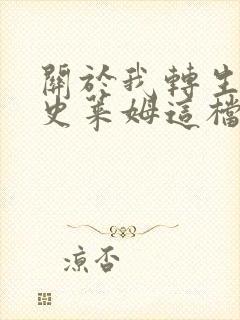 關於我轉生
史萊姆這檔
涼否